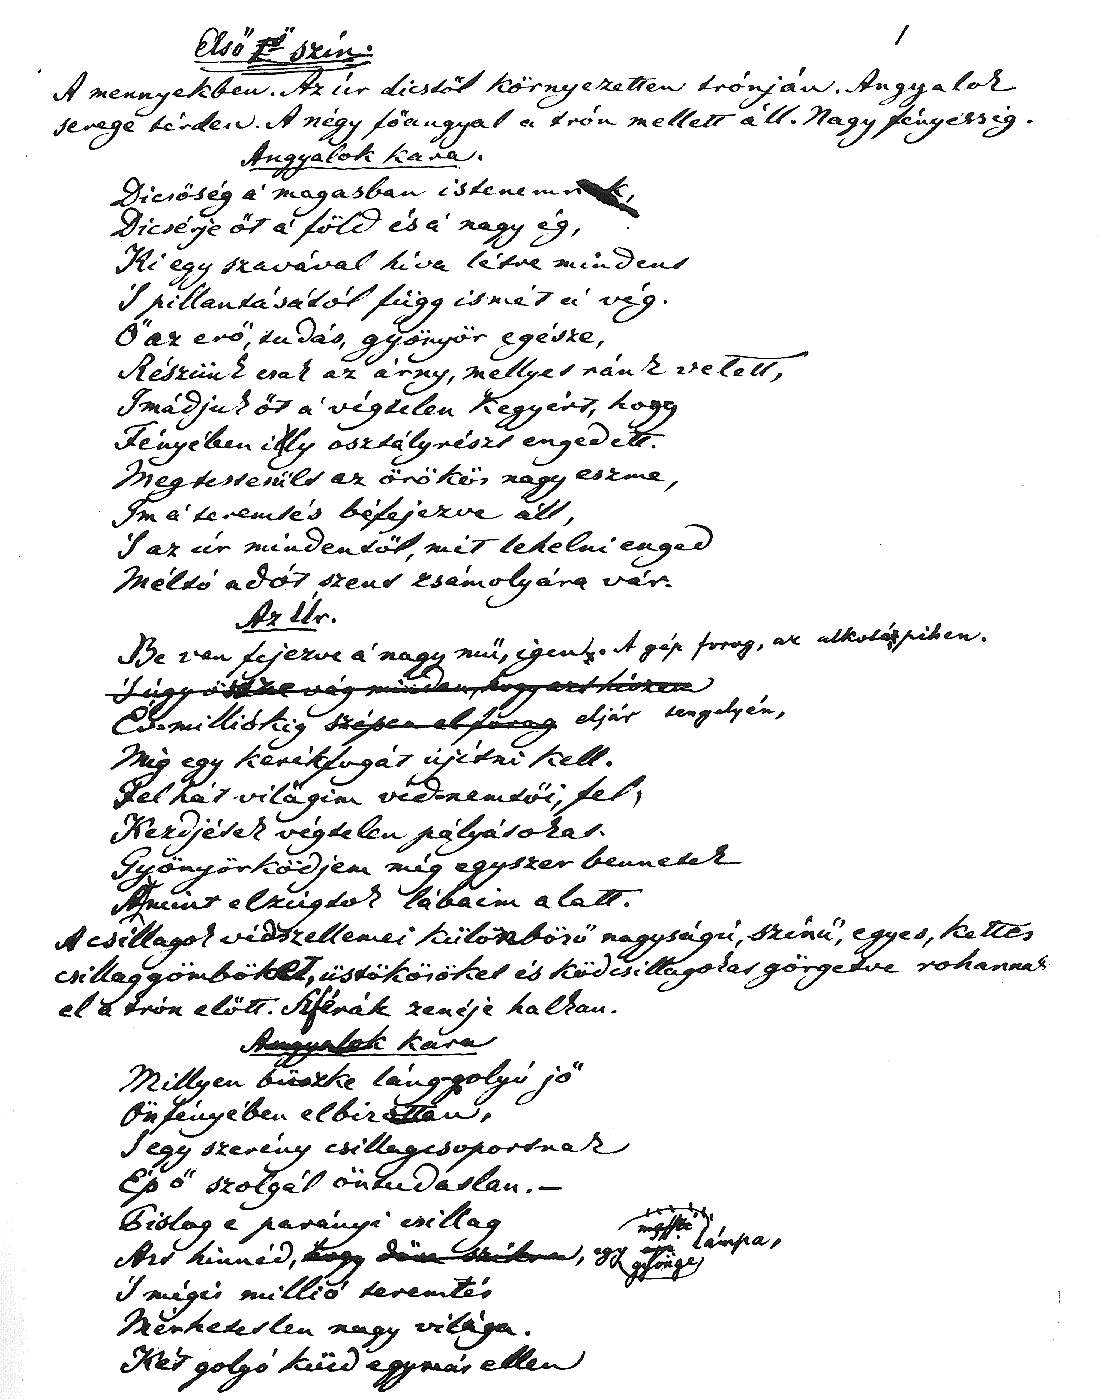 Első szín. 1
A mennyekben. Az úr dicstől környezetten trónján. Angyalok
serege térden. A négy főangyal a trón mellett áll. Nagy fényesség.
Angyalok kara.
Dicsőség á magasban istenemnek,
Dicsérje őt á föld és á nagy ég,
Ki egy szavával híva létre mindent
S pillantásától függ ismét á vég.
Ő az erő, tudás, gyönyör egésze,
Részünk csak az árny, mellyet ránk vetett,
Imádjuk őt á végtelen kegyért, hogy
Fényében illy osztályrészt engedett.
Megtestesűlt az örökös nagy eszme,
Im á teremtés béfejezve áll,
S az úr mindentől, mit lehelni enged
Méltó adót szent zsámolyára vár.
Az Úr.
Be van fejezve á nagy mű, igen. A gép forog, az alkotó pihen.
S úgy össze vág minden, hogy azt hiszem
Év-milliókig szépen el forog eljár tengelyén,
Mig egy kerékfogát újítni kell.
Fel hát világim véd-nemtői, fel,
Kezdjétek végtelen pályátokat.
Gyönyörködjem még egyszer bennetek
Amint elzúgtok lábaim alatt.
A csillagok védszellemei különböző nagyságú, színű, egyes, kettős
csillaggömböket, üstökösöket és ködcsillagokat görgetve rohannak
el a trón előtt. Szférák zenéje halkan.
Angyalok kara
Millyen büszke láng-golyó jő
Önfényében elbizottan,
S egy szerény csillagcsoportnak
Ép ő szolgál öntudatlan. —
Pislog e parányi csillag
Azt hinnéd, hogy , egy gyönge lámpa,
S mégis millió teremtés
Mérhetetlen nagy világa.
Két golyó küzd egymás ellen